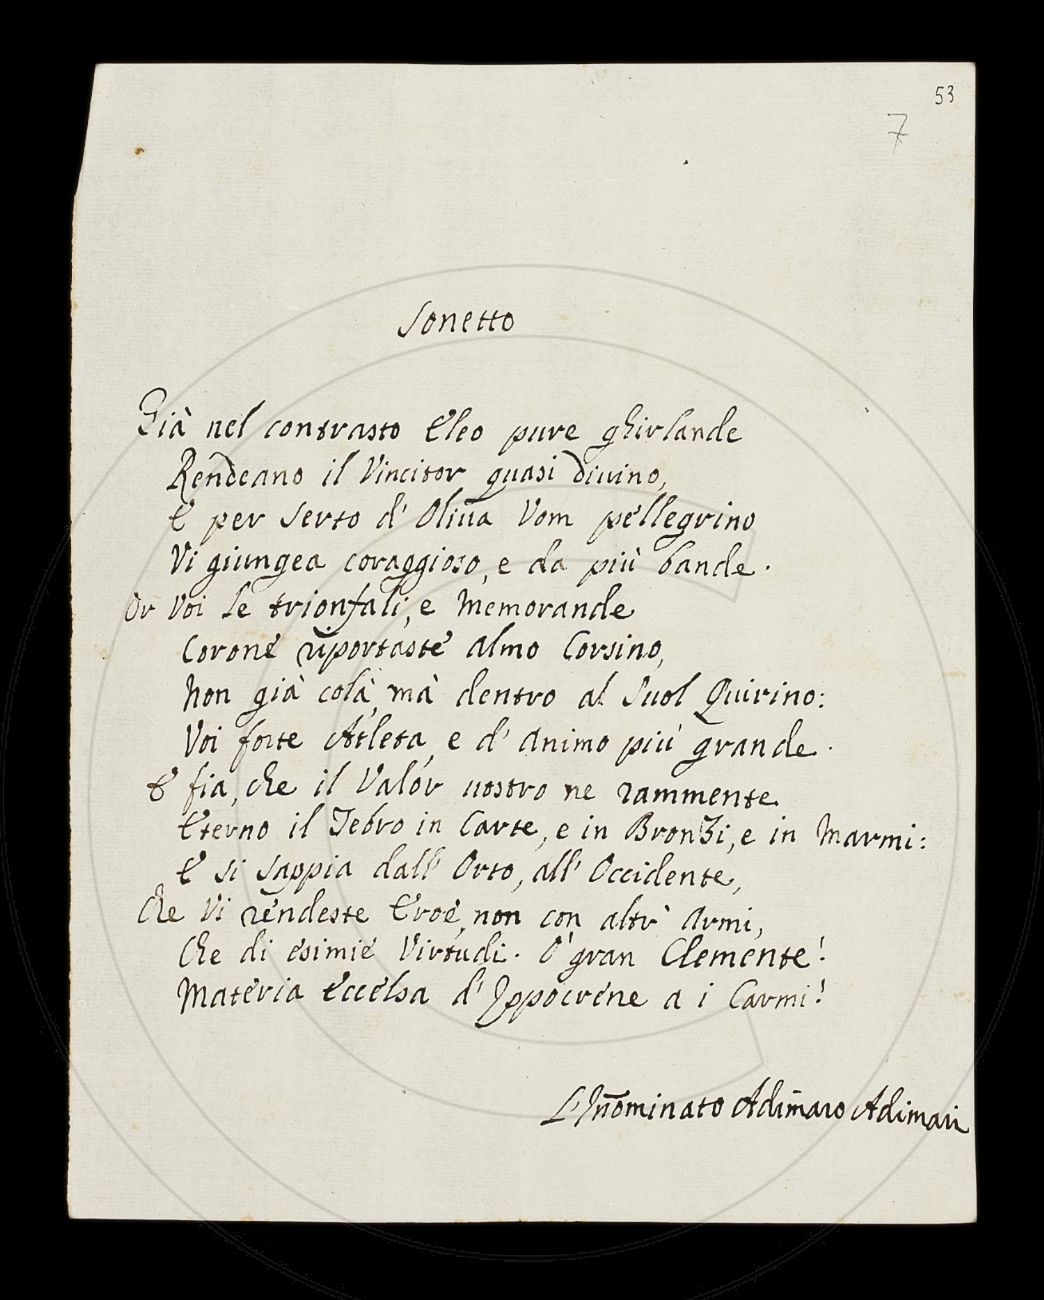 53
7
Sonetto
Già nel contrasto Eleo pure ghirlande
Rendeano il Vincitor quasi divino,
E per Serto d' Oliva Uom pellegrino
Vi giungea coraggioso, e da più bande.
Or Voi le trionfali, e memorande
Corone riportaste almo Corsino,
Non già colà, mà dentro al Suol Quirino:
Voi forte Atleta, e d' animo più grande.
E fia, che il Valor vostro ne rammente
Eterno il Tebro in Carte, e in Bronzi, e in Marmi:
E si sappia dall' Orto, all' Occidente,
Che Vi rendeste Eroe, non con altr' Armi,
Che di esimie Virtudi. O' gran Clemente!
Materia eccelsa d' Ippocrene a i Carmi!
L' Innominato Adimaro Adimari